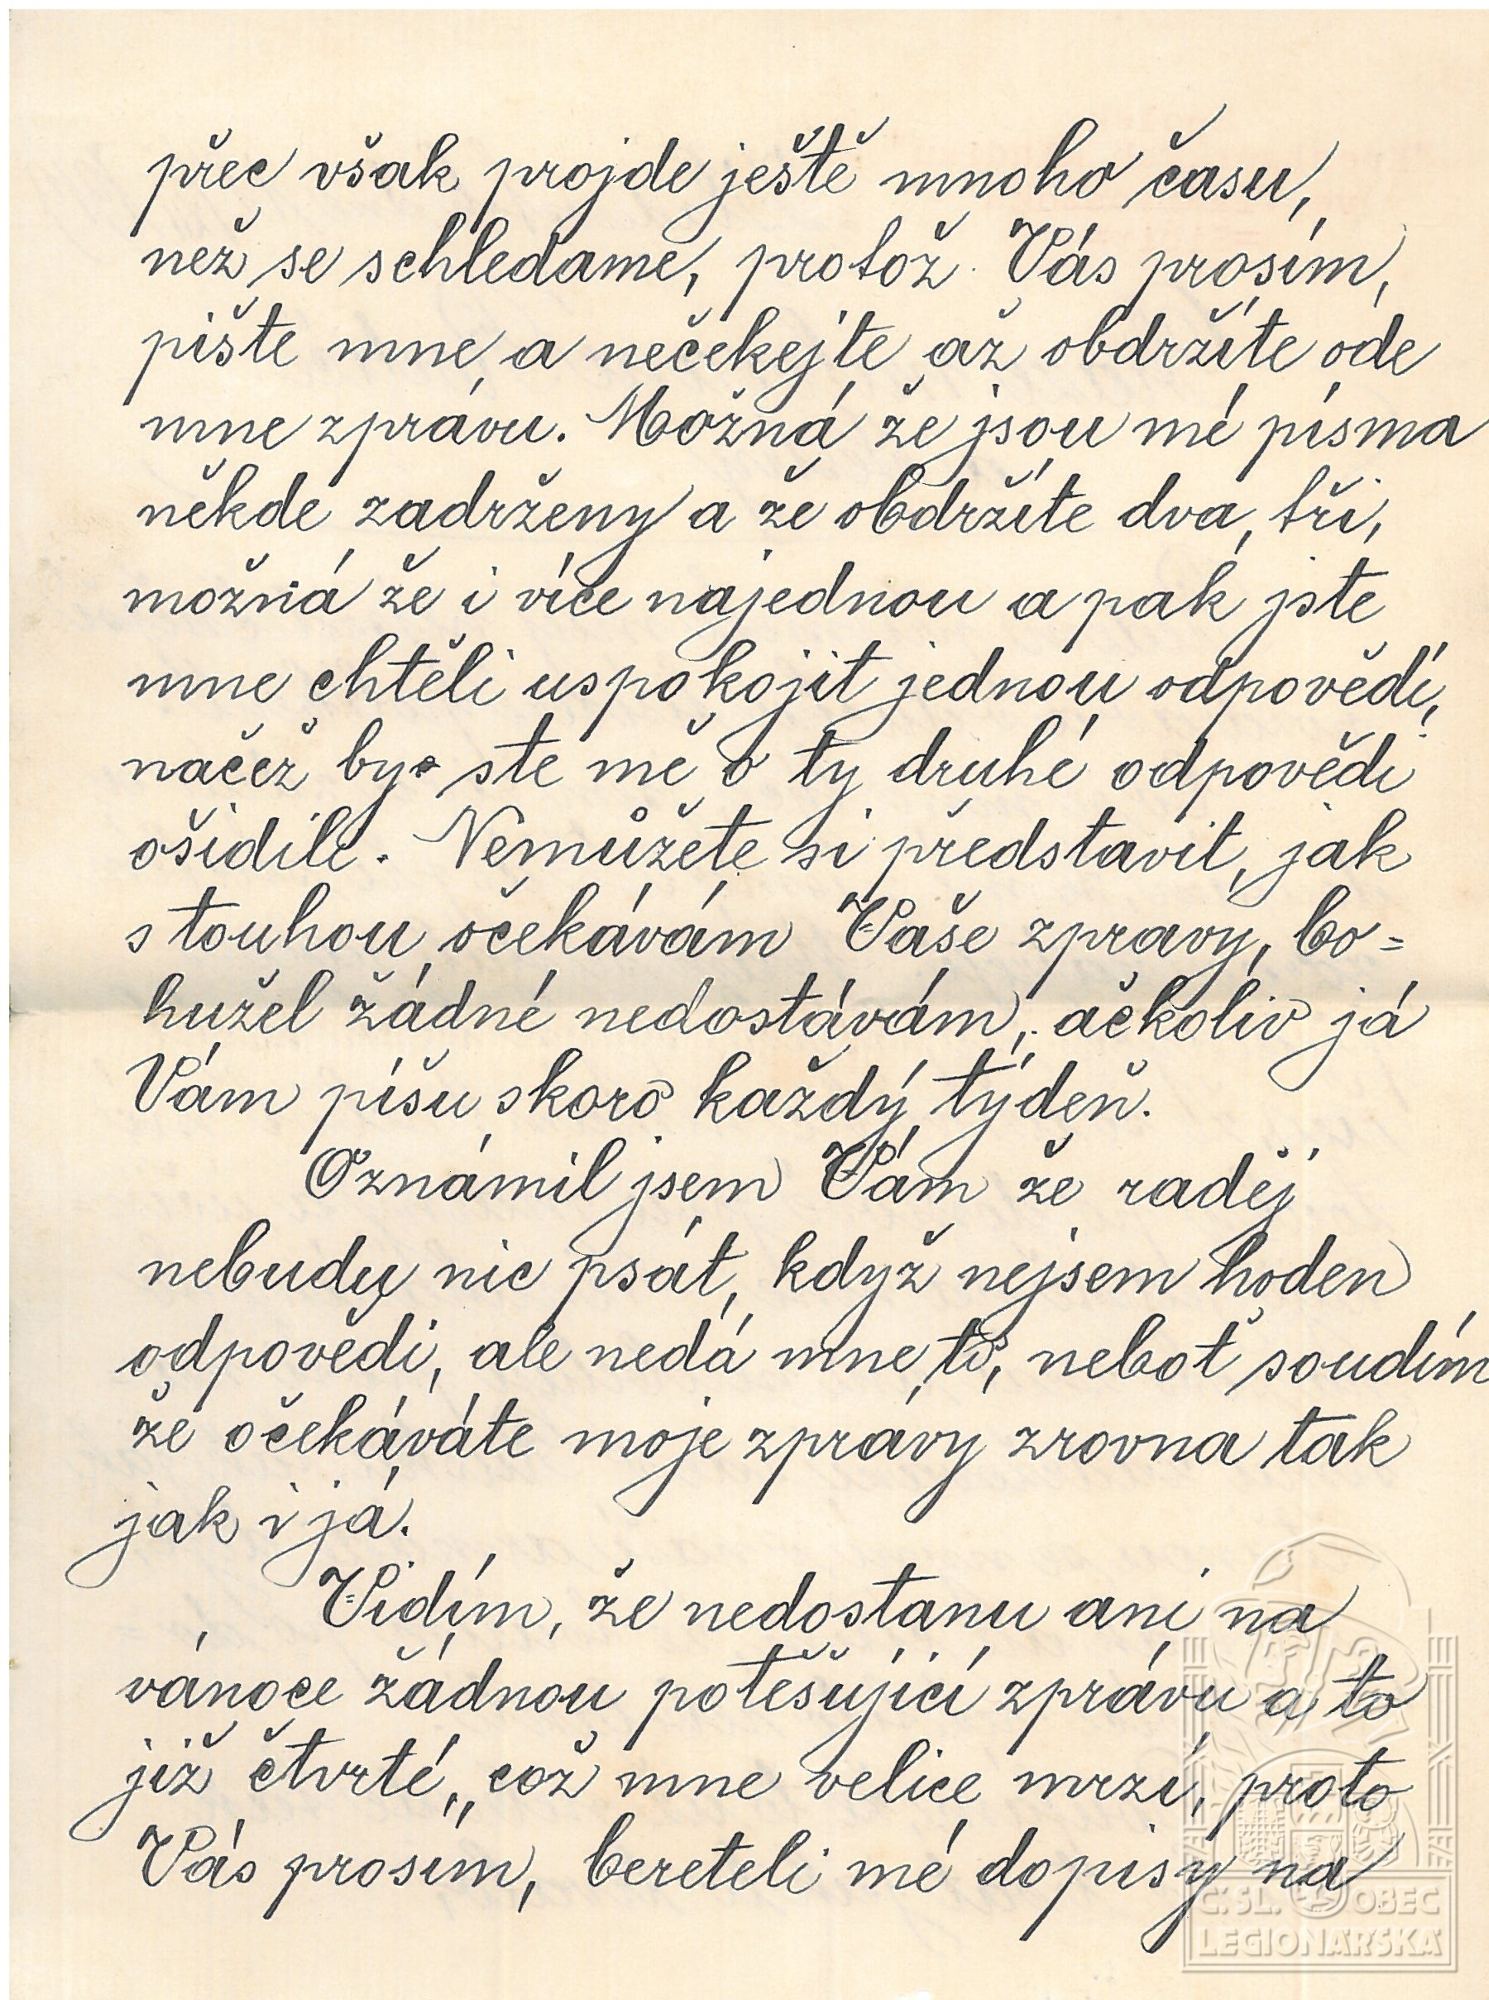 přec však projde ještě mnoho času,
než se schledáme, protož Vás prosím,
pište mne a nečekejte až obdržíte ode
mne zprávu. Možná že jsou mé písma
někde zadrženy a že obdržíte dva, tři,
možná že i více najednou a pak jste
mne chtěli uspokojit jednou odpovědí,
načež by ste mě o ty druhé odpovědi
ošidili. Nemůžete si představit, jak
s touhou očekávám Vaše zprávy, bo=
hužel žádné nedostávám, ačkoliv já
Vám píšu skoro každý týdeň.
Oznámil jsem Vám že raděj
nebudu nic psát, když nejsem hoden
odpovědi, ale nedá mne to, neboť soudím
že očekáváte moje zprávy zrovna tak
jak i já.
Vidím, že nedostanu ani na
vánoce žádnou potěšující zprávu a to
již čtvrté, což mne velice mrzí, proto
Vás prosím, bereteli mé dopisy na
Č. SL. OBEC
LEGIONÁŘSKÁ